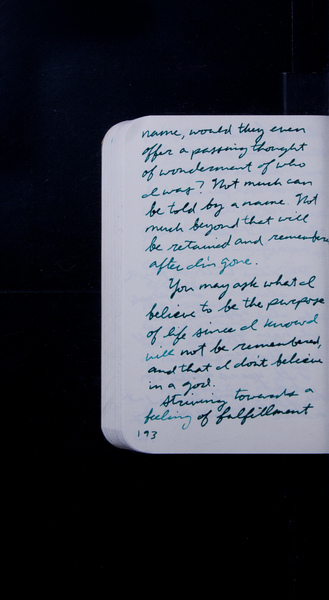 name, would they even
offer a passing thought
of wonderment of who
I was? Not much can
be told by a name. Not
much beyond that will
be retained and remembere
after I'm gone.
You may ask what I
believe to be the purpose
of life since I know I
will not be remembered,
and that I don't believe
in a god.
Striving towards a
feeling of fulfillment
193